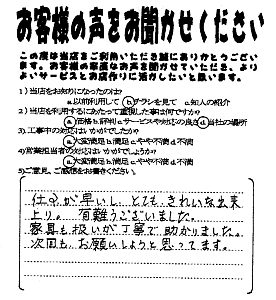 お客様の声をお聞かせください
この度は当店をご利用いただき誠にありがとうござい
ます。お客様の率直なお声を聞かせていただき、より
よいサービスとお店作りに活かしたいと思います。
1)当店をお知りになったのは?
a.以前利用して b.チラシを見て c.知人の紹介
2)当店を利用するにあたって重視した事は何ですか?
a.価格 b.評判 c.サービスや対応の良さ d.当社の場所
3).工事中の対応はいかがでしたか?
a.大変満足 b.満足 c.やや不満 d.不満
4)営業担当者の対応はいかがでしょうか?
a.大変満足 b.満足 c.やや不満 d.不満
5)ご意見、ご感想をお書きください。
仕事が早いし、とても、きれいな出来
上り。有難うございました。
家具も扱いが丁寧で助かりました。
次回も、お願いしようと思ってます。